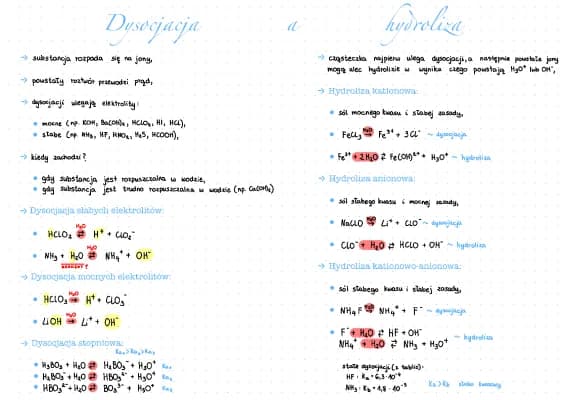 Dysocjacja a hydroliza
→ substancja rozpada się na jony,
→ powstały roztwór przewodzi prąd,
→ dysocjacji ulegają elektrolity:
• mocne (np. KOH, Ba(OH)₂, HClO₄, HI, HCl),
• słabe (np. NH₃, HF, HNO₂, H₂S, HCOOH),
→ kiedy zachodzi?
• gdy substancja jest rozpuszczalna w wodzie,
• gdy substancja jest trudno rozpuszczalna w wodzie (np. Ca(OH)₂)
→ Dysocjacja słabych elektrolitów:
H₂O
• HClO₂ ⇄ H⁺ + ClO₂⁻
H₂O
• NH₃ + H₂O ⇄ NH₄⁺ + OH⁻
→ Dysocjacja mocnych elektrolitów:
H₂O
• HClO₃ → H⁺ + ClO₃⁻
H₂O
• LiOH → Li⁺ + OH⁻
→ Dysocjacja stopniowa:
Ka₁>Ka₂>Ka₃
• H₃BO₃ + H₂O ⇄ H₂BO₃⁻ + H₃O⁺ Ka₁
• H₂BO₃⁻ + H₂O ⇄ HBO₃²⁻ + H₃O⁺ Ka₂
• HBO₃²⁻ + H₂O ⇄ BO₃³⁻ + H₃O⁺ Ka₃
→ cząsteczka najpierw ulega dysocjacji, a następnie powstałe jony
mogą ulec hydrolizie w wyniku czego powstają H₃O⁺ lub OH⁻,
→ Hydroliza kationowa:
• sól mocnego kwasu i słabej zasady,
• FeCl₃ H₂O→ Fe³⁺ + 3Cl⁻ ~ dysocjacja
• Fe³⁺ + 2H₂O ⇄ Fe(OH)²⁺ + H₃O⁺ ~ hydroliza
→ Hydroliza anionowa:
• sól słabego kwasu i mocnej zasady,
• NaClO H₂O→ Li⁺ + ClO⁻ ~ dysocjacja
• ClO⁻ + H₂O ⇄ HClO + OH⁻ ~ hydroliza
→ Hydroliza kationowo-anionowa:
• sól słabego kwasu i słabej zasady,
• NH₄F H₂O→ NH₄⁺ + F⁻ ~ dysocjacja
• F⁻ + H₂O ⇄ HF + OH⁻
NH₄⁺ + H₂O ⇄ NH₃ + H₃O⁺ ~ hydroliza
stałe dysocjacji (z tablic):
HF: Ka = 6,3·10⁻⁴
NH₃: Kb = 1,8·10⁻⁵ Ka>Kb słabo kwasowy